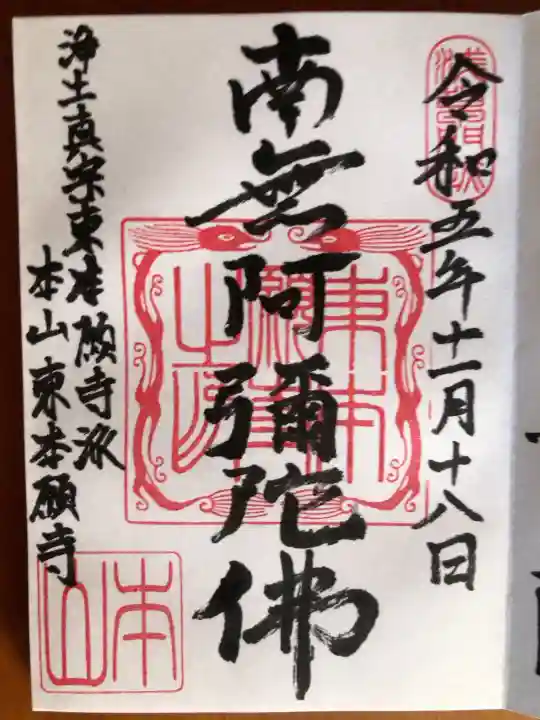 令和五年十一月十八日
南無阿彌陀佛
浄土真宗東本願寺派
本山東本願寺
本山